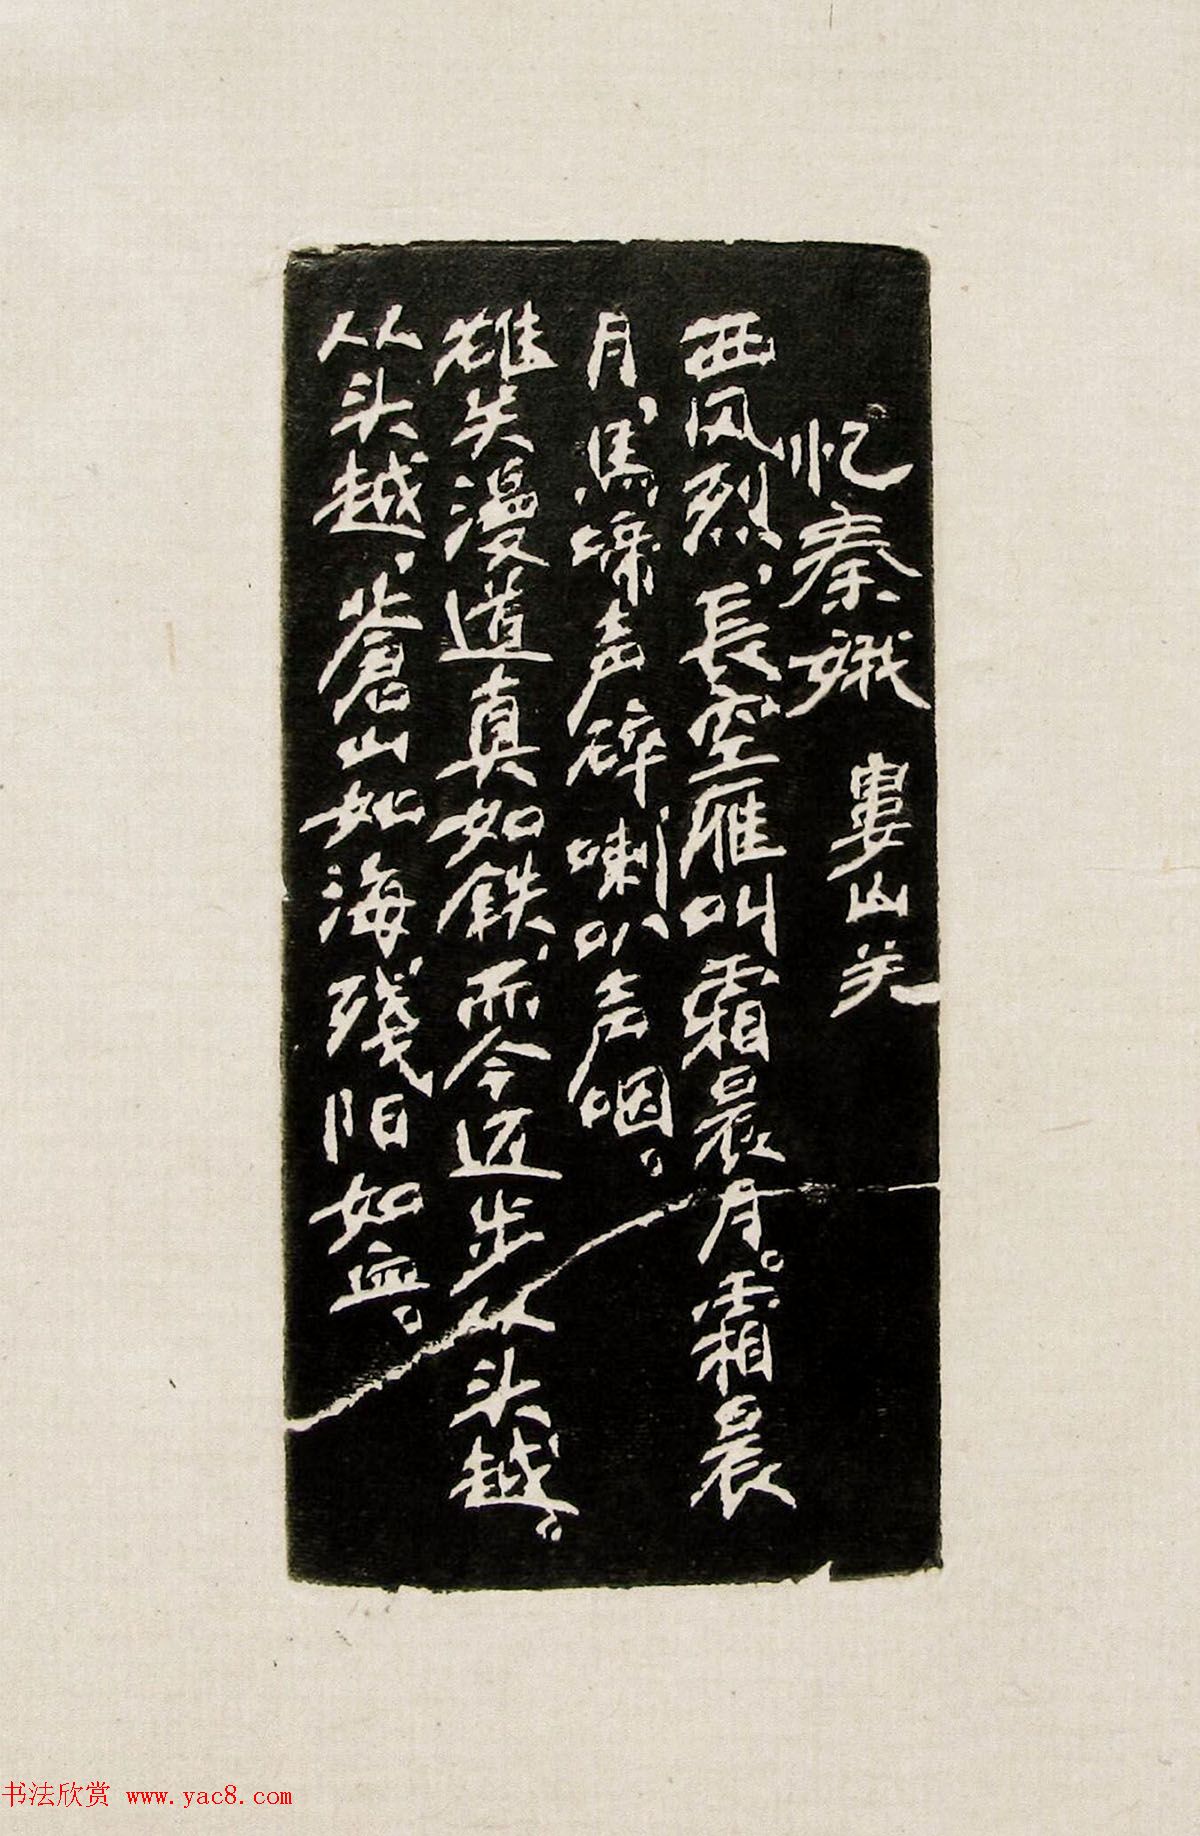 忆秦娥 婁山关
西风烈、長空雁叫霜晨月。霜晨
月、馬啼声碎喇叭声咽。
雄关漫道真如鉄、而今迈步从头越。
从头越、蒼山如海残阳如血。
书法欣赏 www.yac8.com